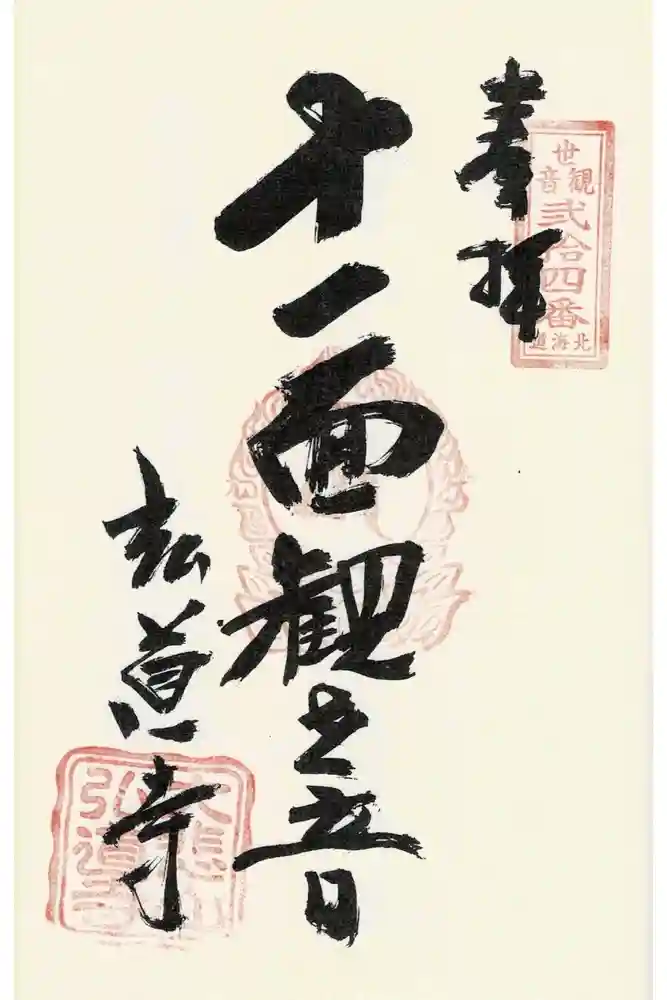 奉拝
観世音
弐拾四番
北海道
十一面観世音
弘道寺
大悲山
弘道寺